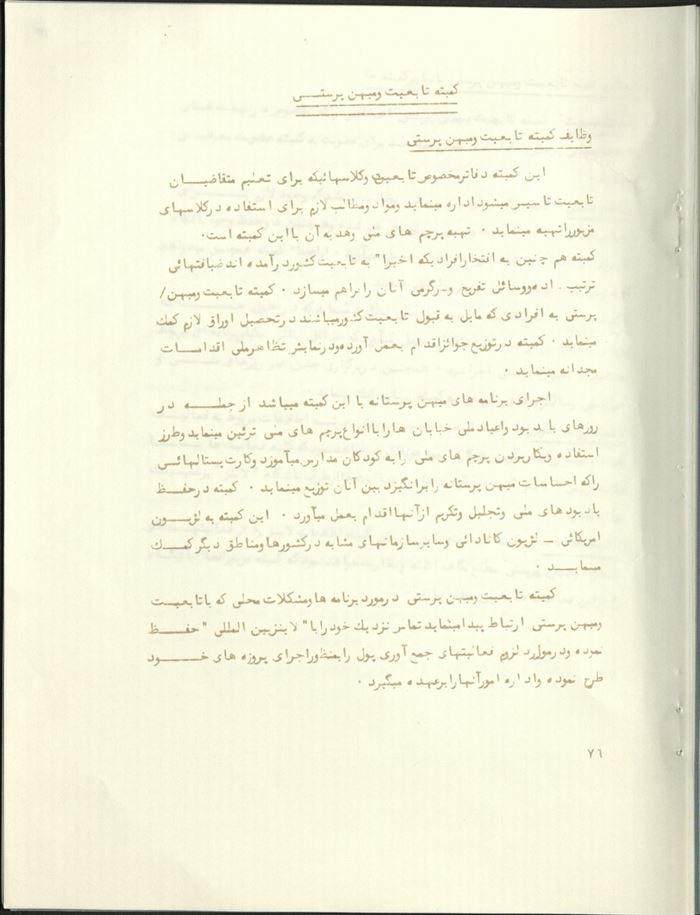 کمیته تابعیت ومیهن پرستـــی
وظایف کمیته تابعیت ومیهن پرستی
این کمیته دفاترمخصوص تابعیت وکلاسهائیکه برای تعلیم متقاضیـــان
تابعیت تاسیس میشود اداره مینماید ومواد ومطالب لازم برای استفاده درکلاسهای
مزبورراتهیه مینماید ۰ تهیه پرچم های ملی وهدیه آن بااین کمیته است۰
کمیته هم چنین به افتخارافرادیکه اخیرا" به تابعیت کشوردرآمده اندضیافتهائی
ترتیب داده ووسائل تفریح وسرگرمی آنان رافراهم میسازد ۰ کمیته تابعیت ومیهن/
پرستی به افرادی که مایل به قبول تابعیت کشورمیباشند درتحصیل اوراق لازم کمک
مینماید ۰ کمیته درتوزیع جوائزاقدام بعمل آورده ودرنمایش تظاهرملی اقدامـــات
مجدانه مینماید ۰
اجرای برنامه های میهن پرستانه با این کمیته میباشد ازجملـــه در
روزهای یادبود واعیادملی خیابان هاراباانواع پرچم های ملی تزئین مینماید وطرز
استفاده وبکاربردن پرچم های ملی رابه کودکان مدارس میآموزد وکارت پستالهائـــی
راکه احساسات میهن پرستانه رابرانگیزد بین آنان توزیع مینماید ۰ کمیته درحفـــظ
یادبودهای ملی وتجلیل وتکریم ازآنهااقدام بعمل میآورد ۰ این کمیته به لژیـــون
امریکائی ـ لژیون کانادائی وسایرسازمانهای مشابه درکشورهاومناطق دیگرکمـــک
مینمایـــد ۰
کمیته تابعیت ومیهن پرستی درمورد برنامه هاومشکلات محلی که باتابعیـــت
ومیهن پرستی ارتباط پیدامینماید تماس نزدیک خودرابا" لاینزبین المللی " حفـــظ
نموده ودرموارد لزوم فعالیتهای جمع آوری پول رابمنظوراجرای پروژه های خـــود
طرح نموده واداره امورآنهارابرعهده میگیرد ۰
۷٦